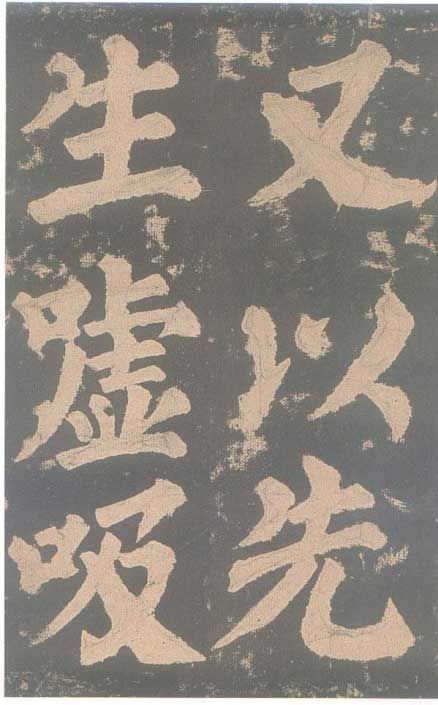 又以先
生噓吸